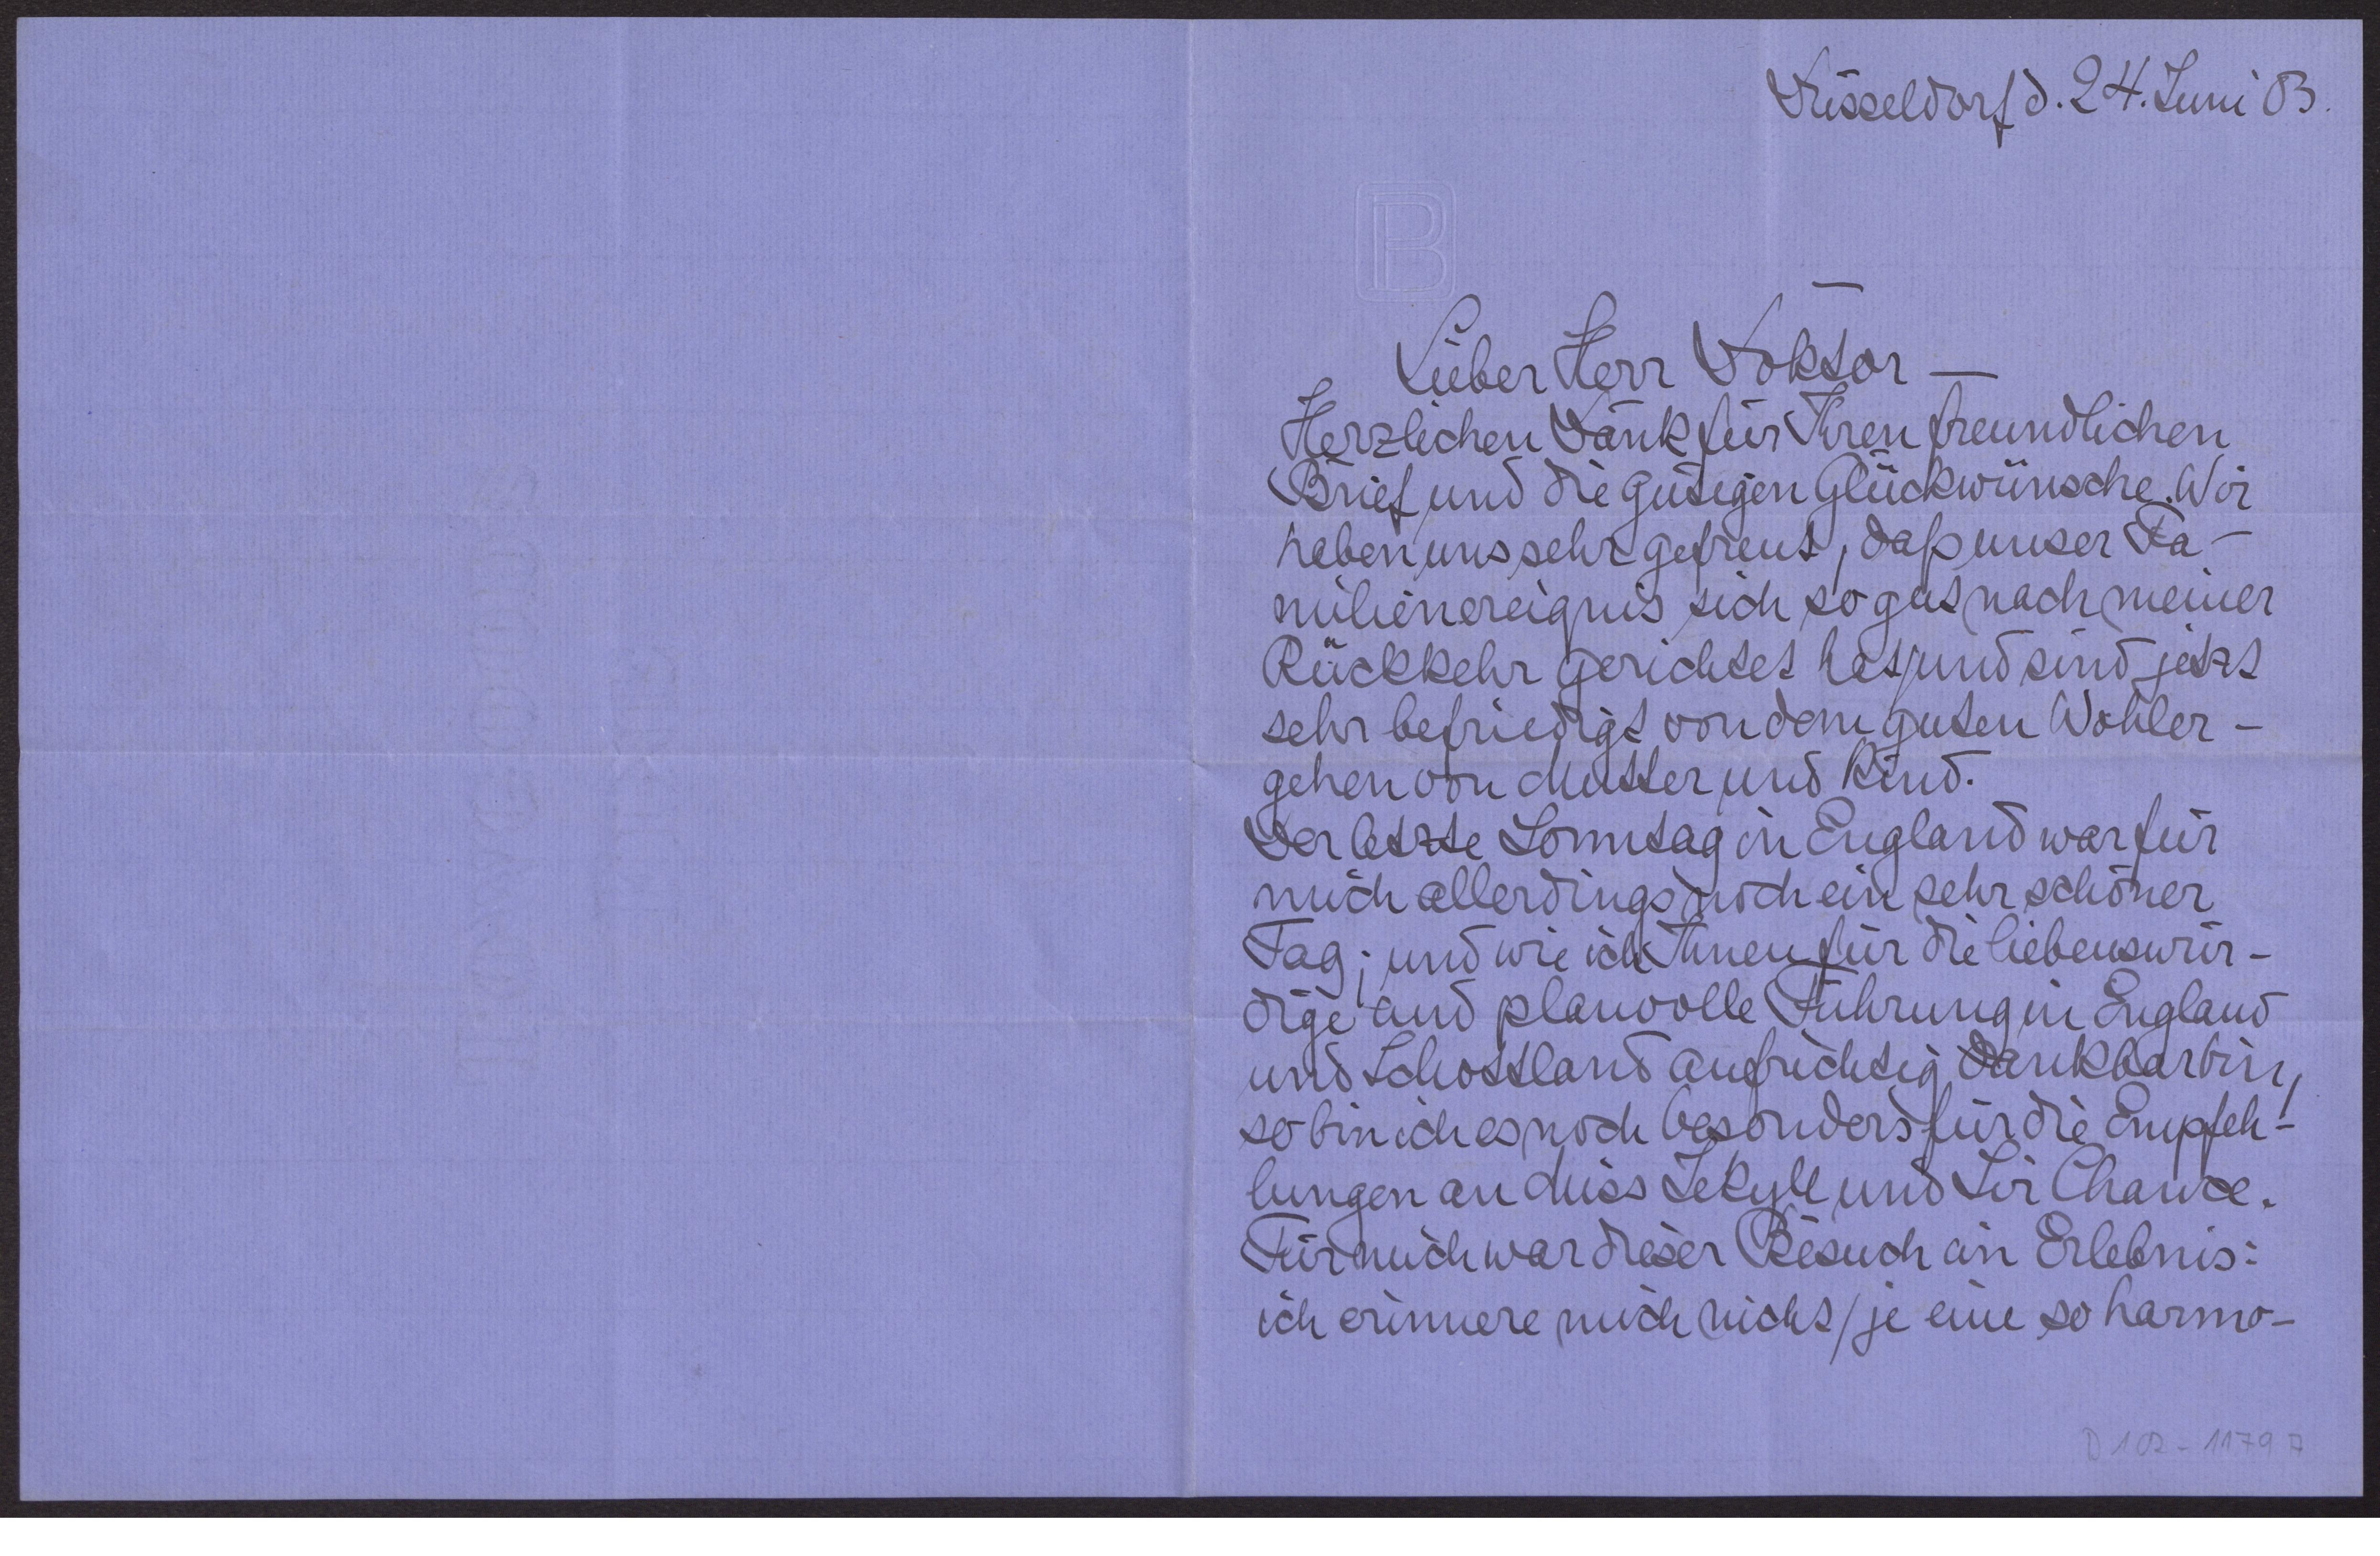 Düsseldorf d. 24. Juni 03.
PB
Lieber Herr Doktor —
Herzlichen Dank für Ihren freundlichen
Brief und die gütigen Glückwünsche. Wir
haben uns sehr gefreut, daß unser Fa-
milienereignis sich so gut nach meiner
Rückkehr gerichtet hat, und sind jetzt
sehr befriedigt von dem guten Wohler-
gehen von Mutter und Kind.
Der letzte Sonntag in England war für
mich allerdings noch ein sehr schöner
Tag; und wie ich Ihnen für die liebenswür-
dige und planvolle Führung in England
und Schottland aufrichtig dankbar bin,
so bin ich es noch besonders für die Empfeh-
lungen an Miss Jekyll und Sir Chance.
Für mich war dieser Besuch ein Erlebnis:
ich erinnere mich nicht, je eine so harmo-
D 102-1179 A